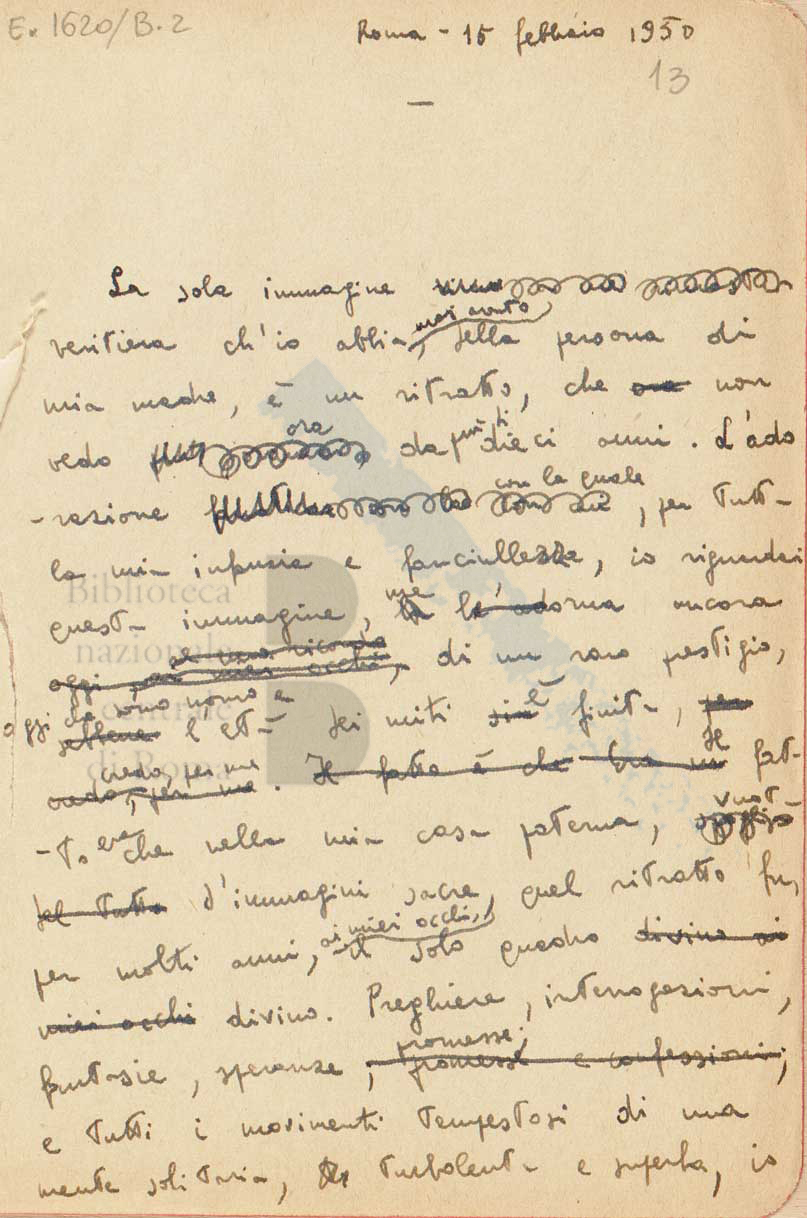 E. 1620/B.2
Roma - 15 febbraio 1950
13
La sola immagine
veritiera ch'io abbia mai avuto, della persona di
mia madre, è un ritratto, che ora non
vedo ora da più di dieci anni. L'ado
-razione con la quale, per tutta
la mia infanzia e fanciullezza, io riguardai
questa immagine, me la adorna ancora
oggi per i miei occhi, di un raro prestigio,
oggi che sono uomo e l'età dei miti è finita, per
credo, per me
credo, per me. Il fatto è che Era un Il fat-
-to era che nella mia casa paterna, vuota
del tutto d'immagini sacre, quel ritratto fu,
per molti anni, ai miei occhi, il solo quadro divino ai
miei occhi divino. Preghiere, interrogazioni,
promesse;
fantasie, speranze, promesse e confessioni;
e tutti i movimenti tempestosi di una
mente solitaria, turbolenta e superba, io
Biblioteca
nazionale
centrale
di Roma